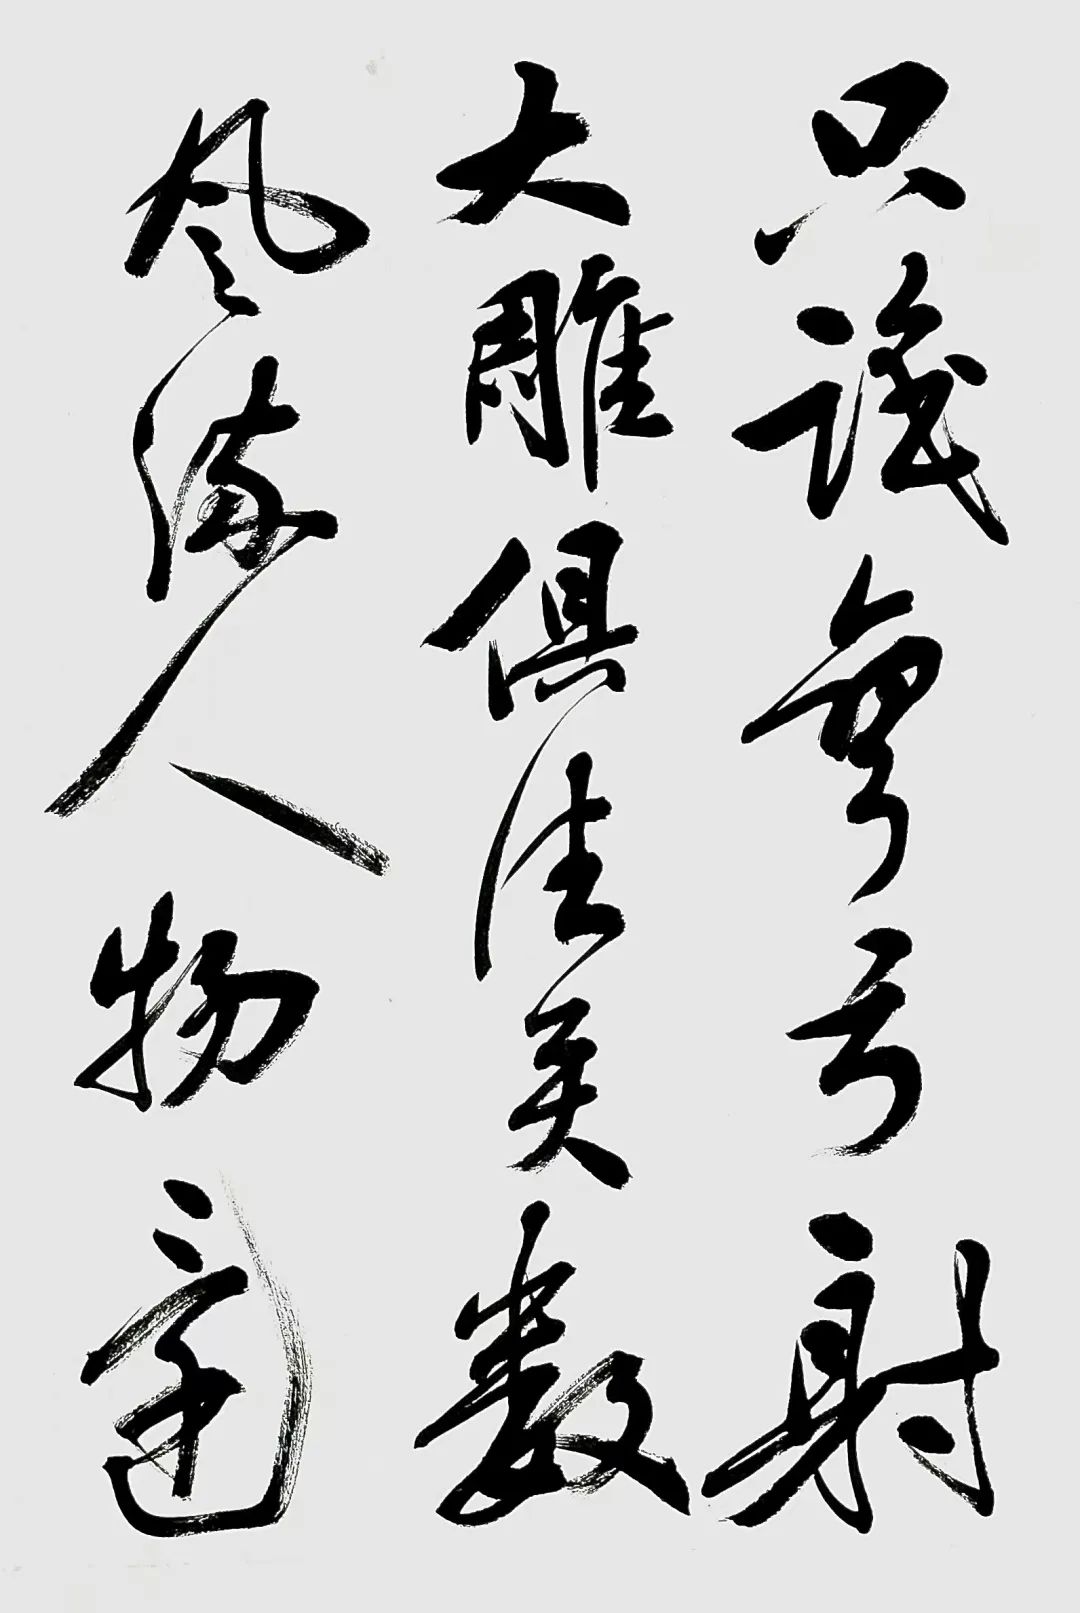 只識彎弓射
大雕俱往矣數
風流人物還